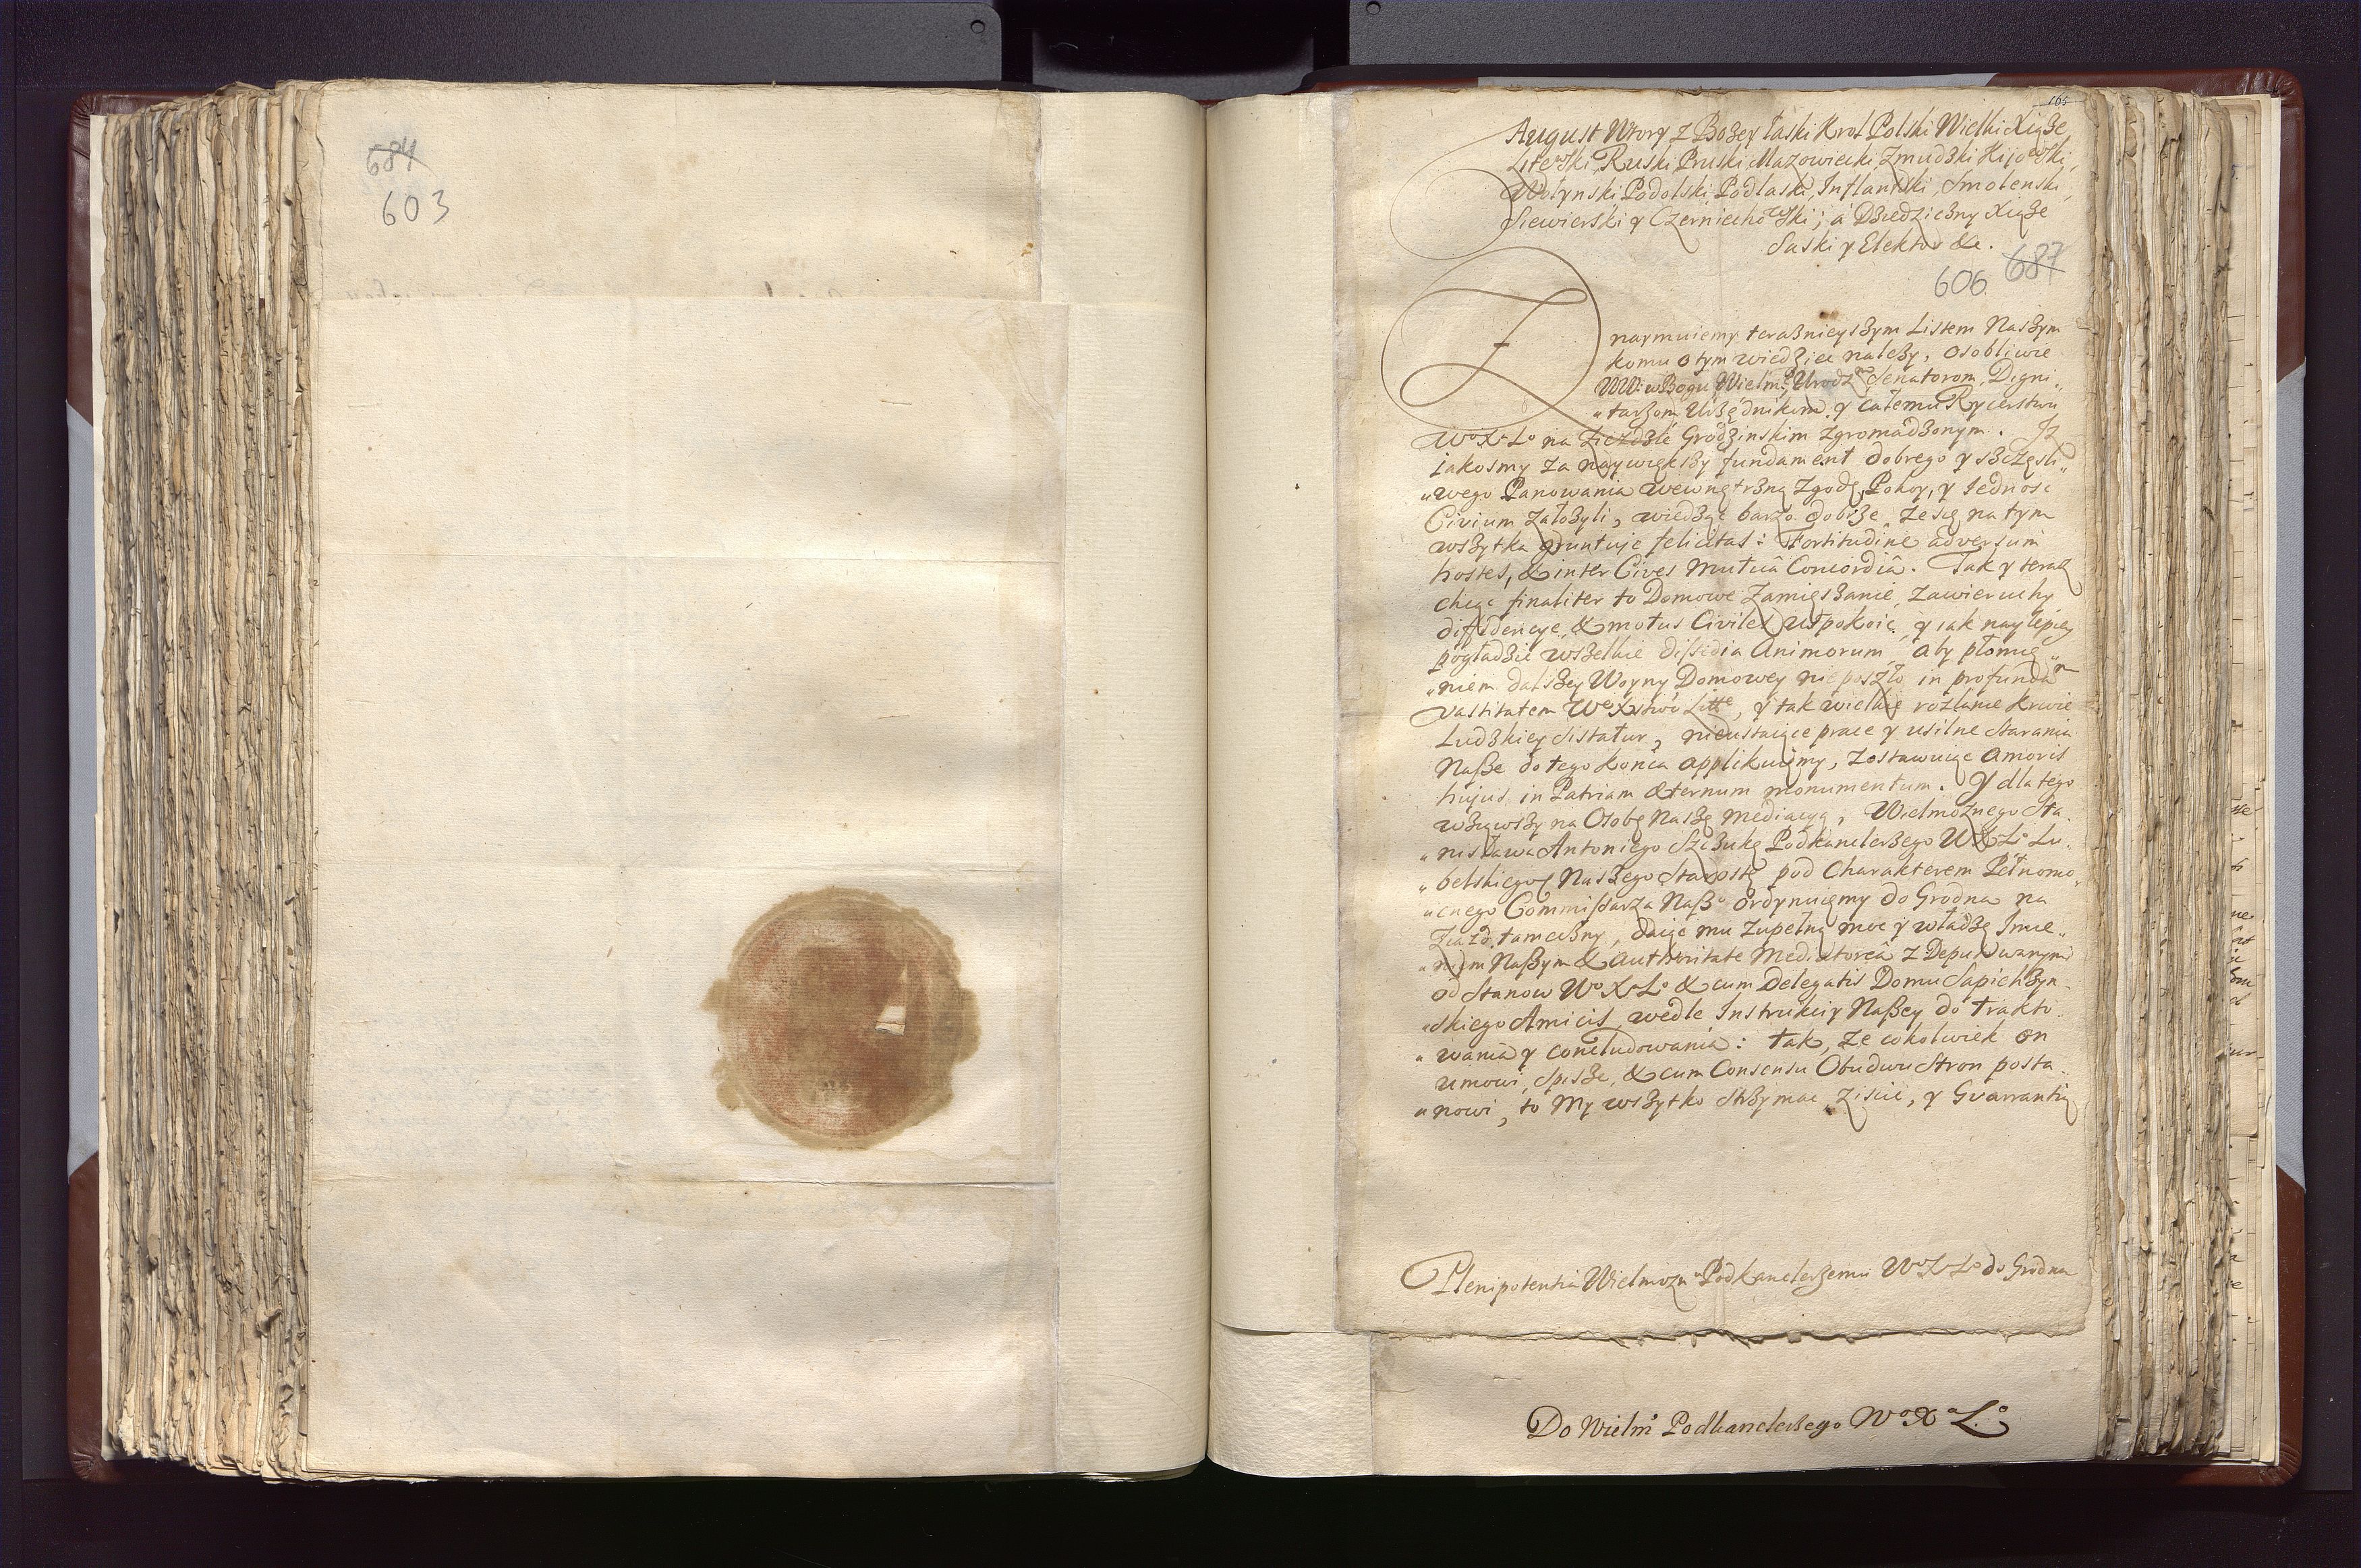 684
603
165
August Wtory z Bożey łaski Krol Polski Wielki Xiąże
Litewski, Ruski Pruski Mazowiecki, Zmudzki Kijowski,
Wołynski, Podolski, Podlaski, Inflantski, Smolenski,
Siewierski y Czerniechowski; a Dziedziczny Xiąże
Saski y Elektor &c.
606 687
Znaymuiemy teraznieyszym Listem Naszym
komu o tym wiedziec nalezy, osobliwie
WW: w Bogu Wielm: Urodz: Senatorom, Digni„
„tarzom Urzędnikom y całemu Rycerstwu
Wo Xa Lo na Zieździe Grodzinskim zgromadzonym. Iz
iakosmy za naywiększy fundament dobrego y szczęsli„
„wego Panowania wewnętrzną Zgodę, Pokoy, y Iednosc
Civium założyli, wiedząc barzo dobrze że się na tym
wszytka gruntuje felicitas: Fortitudine adversum
hostes, & inter Cives Mutuâ Concordiâ. Tak y teraz
chcąc finaliter to Domowe Zamięszanie, Zawieruchy
diffidencye, & motus Civiles uspokoic, y iak naylepiey
pogładzic wszelkie dissidia Animorum aby płomie„
„niem dalszey Woyny Domowey nie poszło in profundam
vastitatem We Xstwa Litt, y tak wielkie rozlanie krwie
Ludzkiey sistatur, nieustaiące prace y usilne starania
Nasze do tego konca applikuiemy, zostawuiąc Amoris
hujus in Patriam æternum monumentum. Y dla tego
wziąwszy na Osobę Naszę Mediacyą, Wielmoznego Sta„
„nisława Antoniego Szczukę Podkanclerzego W X L Lu„
„belskiego Naszego Starostę pod Charakterem Pełnomo„
„cnego Commissarza Naszo ordynuiemy do Grodna na
Ziazd tameczny, daiąc mu zupełną moc y władzę Imie„
„niem Naszym & authoritate Mediatoreâ z Deputowanymi
od Stanow Wo Xa Lo & cum Delegatis Domu Sapiezyn„
„skiego Amicis, wedle Instrukcij Naszey do trakto„
„wania y concludowania: tak, że cokolwiek on
umowi, spisze, & cum Consensu Obudwu Stron posta„
„nowi, to My wszytko strzymac, ziscic, y Gvarrantią
Plenipotentia Wielmozn Podkanclerzemu Wo Xa Lo do Grodna
Do Wielmo Podkanclerzego Wo Xa Lo